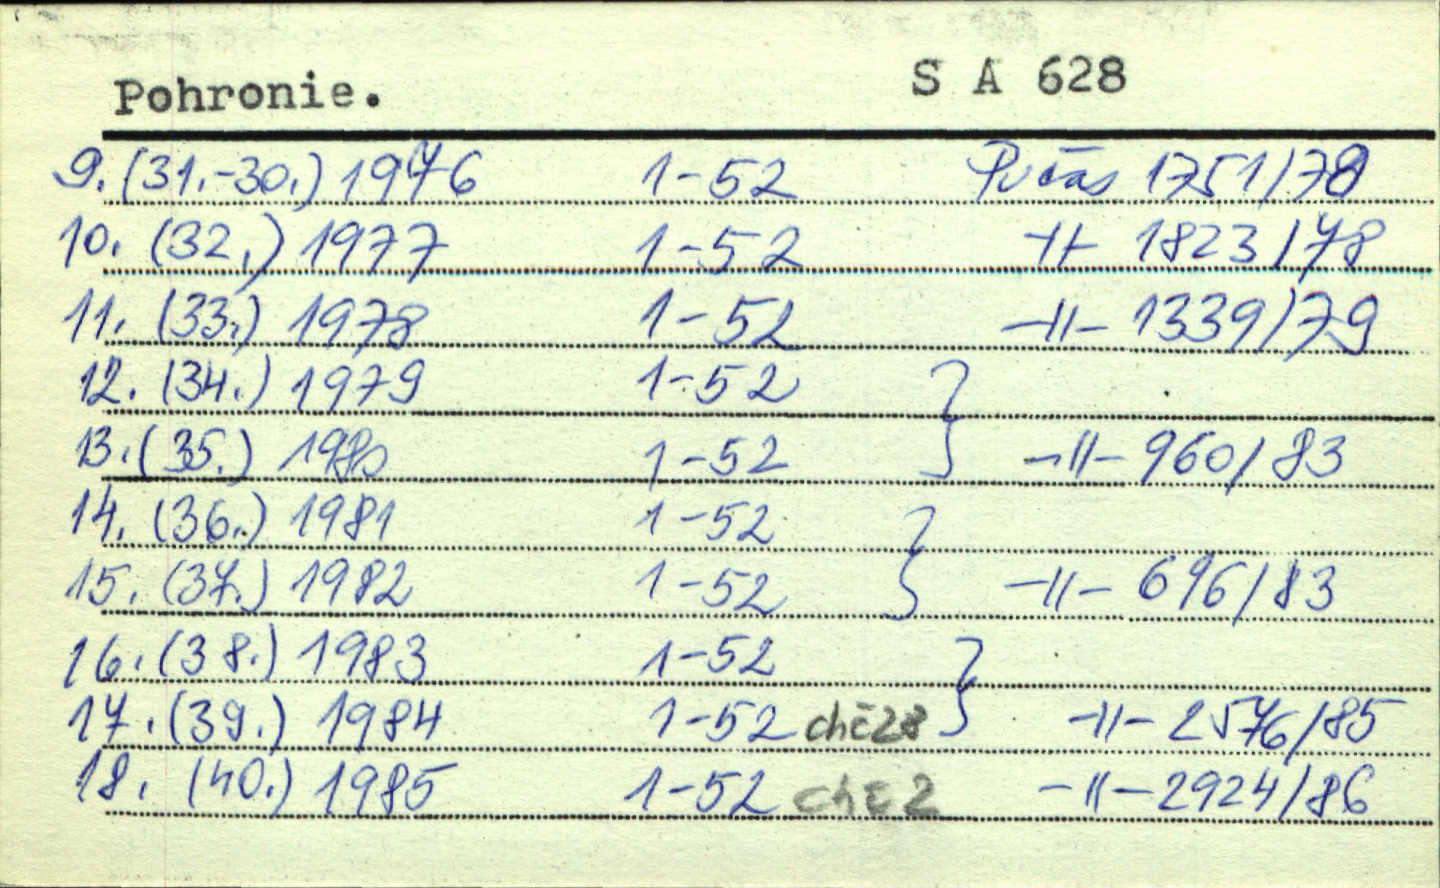 Pohronie. S A 628
9. (31.-30.) 1976 1-52 Prčas 1751/78
10. (32.) 1977 1-52 -II- 1823/78
11. (33.) 1978 1-52 -II- 1339/79
12. (34.) 1979 1-52 }
13. (35.) 1980 1-52 } -II- 960/83
14. (36.) 1981 1-52 }
15. (37.) 1982 1-52 } -II- 696/83
16. (38.) 1983 1-52 }
17. (39.) 1984 1-52 chč28 } -II- 2576/85
18. (40.) 1985 1-52 chč 2 -II- 2924/86